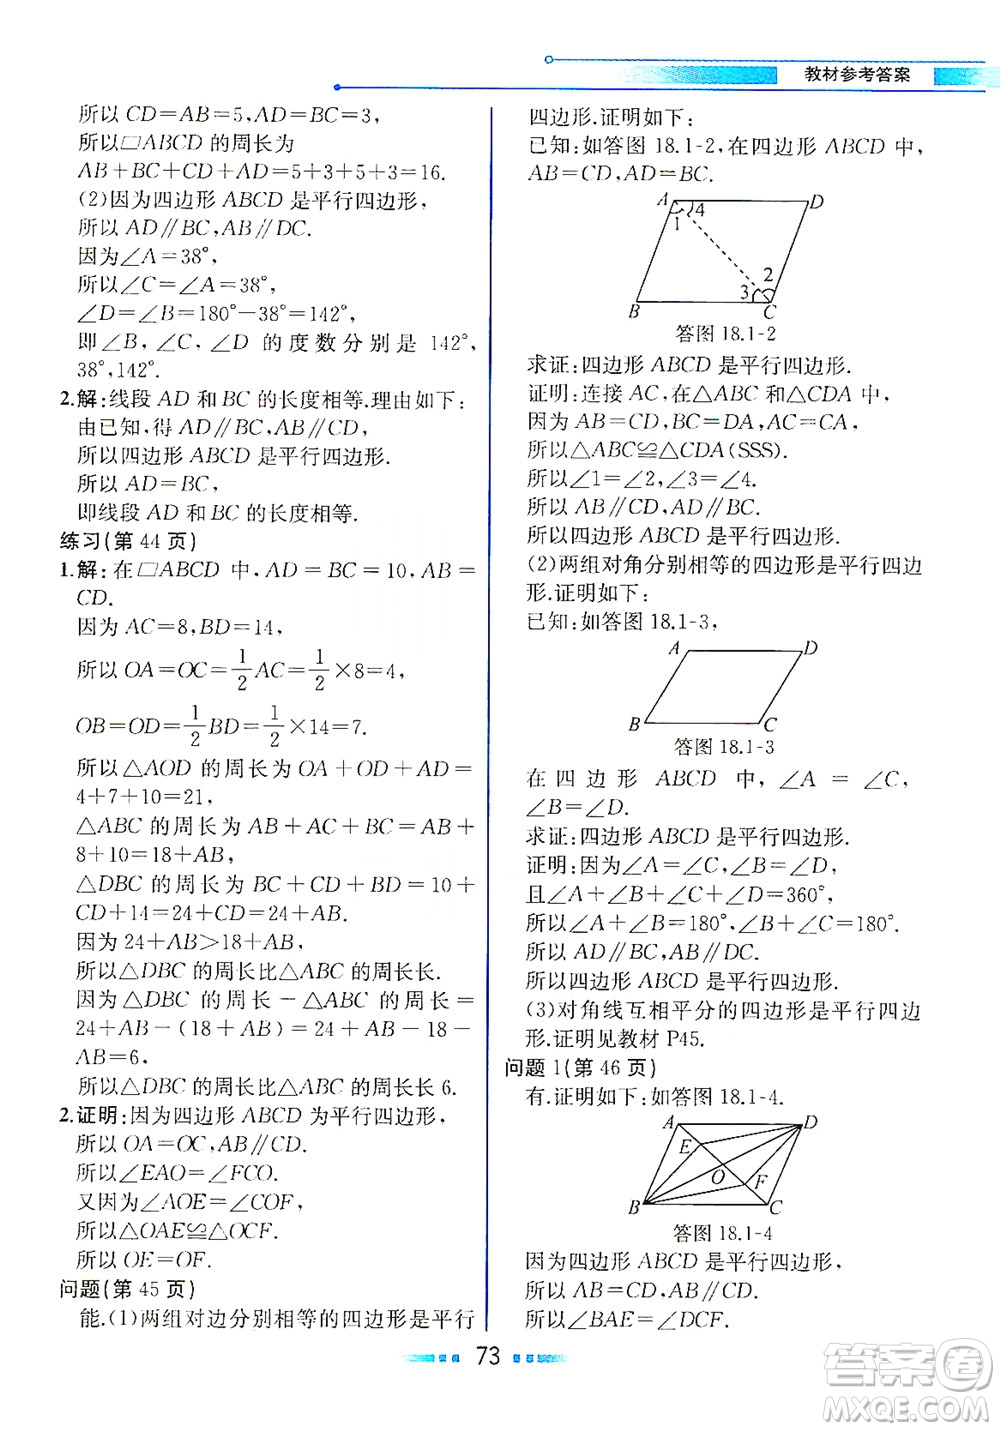 教材参考答案
所以 CD=AB=5,AD=BC=3,
所以▱ABCD 的周长为
AB+BC+CD+AD=5+3+5+3=16.
(2)因为四边形 ABCD 是平行四边形,
所以 AD∥BC,AB∥DC.
因为∠A=38°,
所以∠C=∠A=38°,
∠D=∠B=180°-38°=142°,
即∠B,∠C,∠D 的度数分别是 142°,
38°,142°.
2.解:线段 AD 和 BC 的长度相等.理由如下:
由已知,得 AD∥BC,AB∥CD,
所以四边形 ABCD 是平行四边形.
所以 AD=BC,
即线段 AD 和 BC 的长度相等.
练习(第 44 页)
1.解:在▱ABCD 中,AD=BC=10,AB=
CD.
因为 AC=8,BD=14,
所以 OA=OC=1/2 AC=1/2×8=4,
OB=OD=1/2 BD=1/2×14=7.
所以△AOD 的周长为 OA+OD+AD=
4+7+10=21,
△ABC 的周长为 AB+AC+BC=AB+
8+10=18+AB,
△DBC 的周长为 BC+CD+BD=10+
CD+14=24+CD=24+AB.
因为 24+AB>18+AB,
所以△DBC 的周长比△ABC 的周长长.
因为△DBC 的周长-△ABC 的周长=
24+AB-(18+AB)=24+AB-18-
AB=6,
所以△DBC 的周长比△ABC 的周长长 6.
2.证明:因为四边形 ABCD 为平行四边形,
所以 OA=OC,AB∥CD.
所以∠EAO=∠FCO.
又因为∠AOE=∠COF,
所以△OAE≌△OCF.
所以 OE=OF.
问题(第 45 页)
能.(1)两组对边分别相等的四边形是平行
四边形.证明如下:
已知:如答图 18.1-2,在四边形 ABCD 中,
AB=CD,AD=BC.
A
4
D
1
2
3
B
C
答图 18.1-2
求证:四边形 ABCD 是平行四边形.
证明:连接 AC,在△ABC 和△CDA 中,
因为 AB=CD,BC=DA,AC=CA,
所以△ABC≌△CDA(SSS).
所以∠1=∠2,∠3=∠4.
所以 AB∥CD,AD∥BC.
所以四边形 ABCD 是平行四边形.
(2)两组对角分别相等的四边形是平行四边
形.证明如下:
已知:如答图 18.1-3,
A
D
B
C
答图 18.1-3
在四边形 ABCD 中,∠A=∠C,
∠B=∠D.
求证:四边形 ABCD 是平行四边形.
证明:因为∠A=∠C,∠B=∠D,
且∠A+∠B+∠C+∠D=360°,
所以∠A+∠B=180°,∠B+∠C=180°.
所以 AD∥BC,AB∥DC.
所以四边形 ABCD 是平行四边形.
(3)对角线互相平分的四边形是平行四边
形.证明见教材 P45.
问题 1(第 46 页)
有.证明如下:如答图 18.1-4.
A
D
E
O
F
B
C
答图 18.1-4
因为四边形 ABCD 是平行四边形,
所以 AB=CD,AB∥CD,
所以∠BAE=∠DCF.
73
答案圈
MXQE.COM